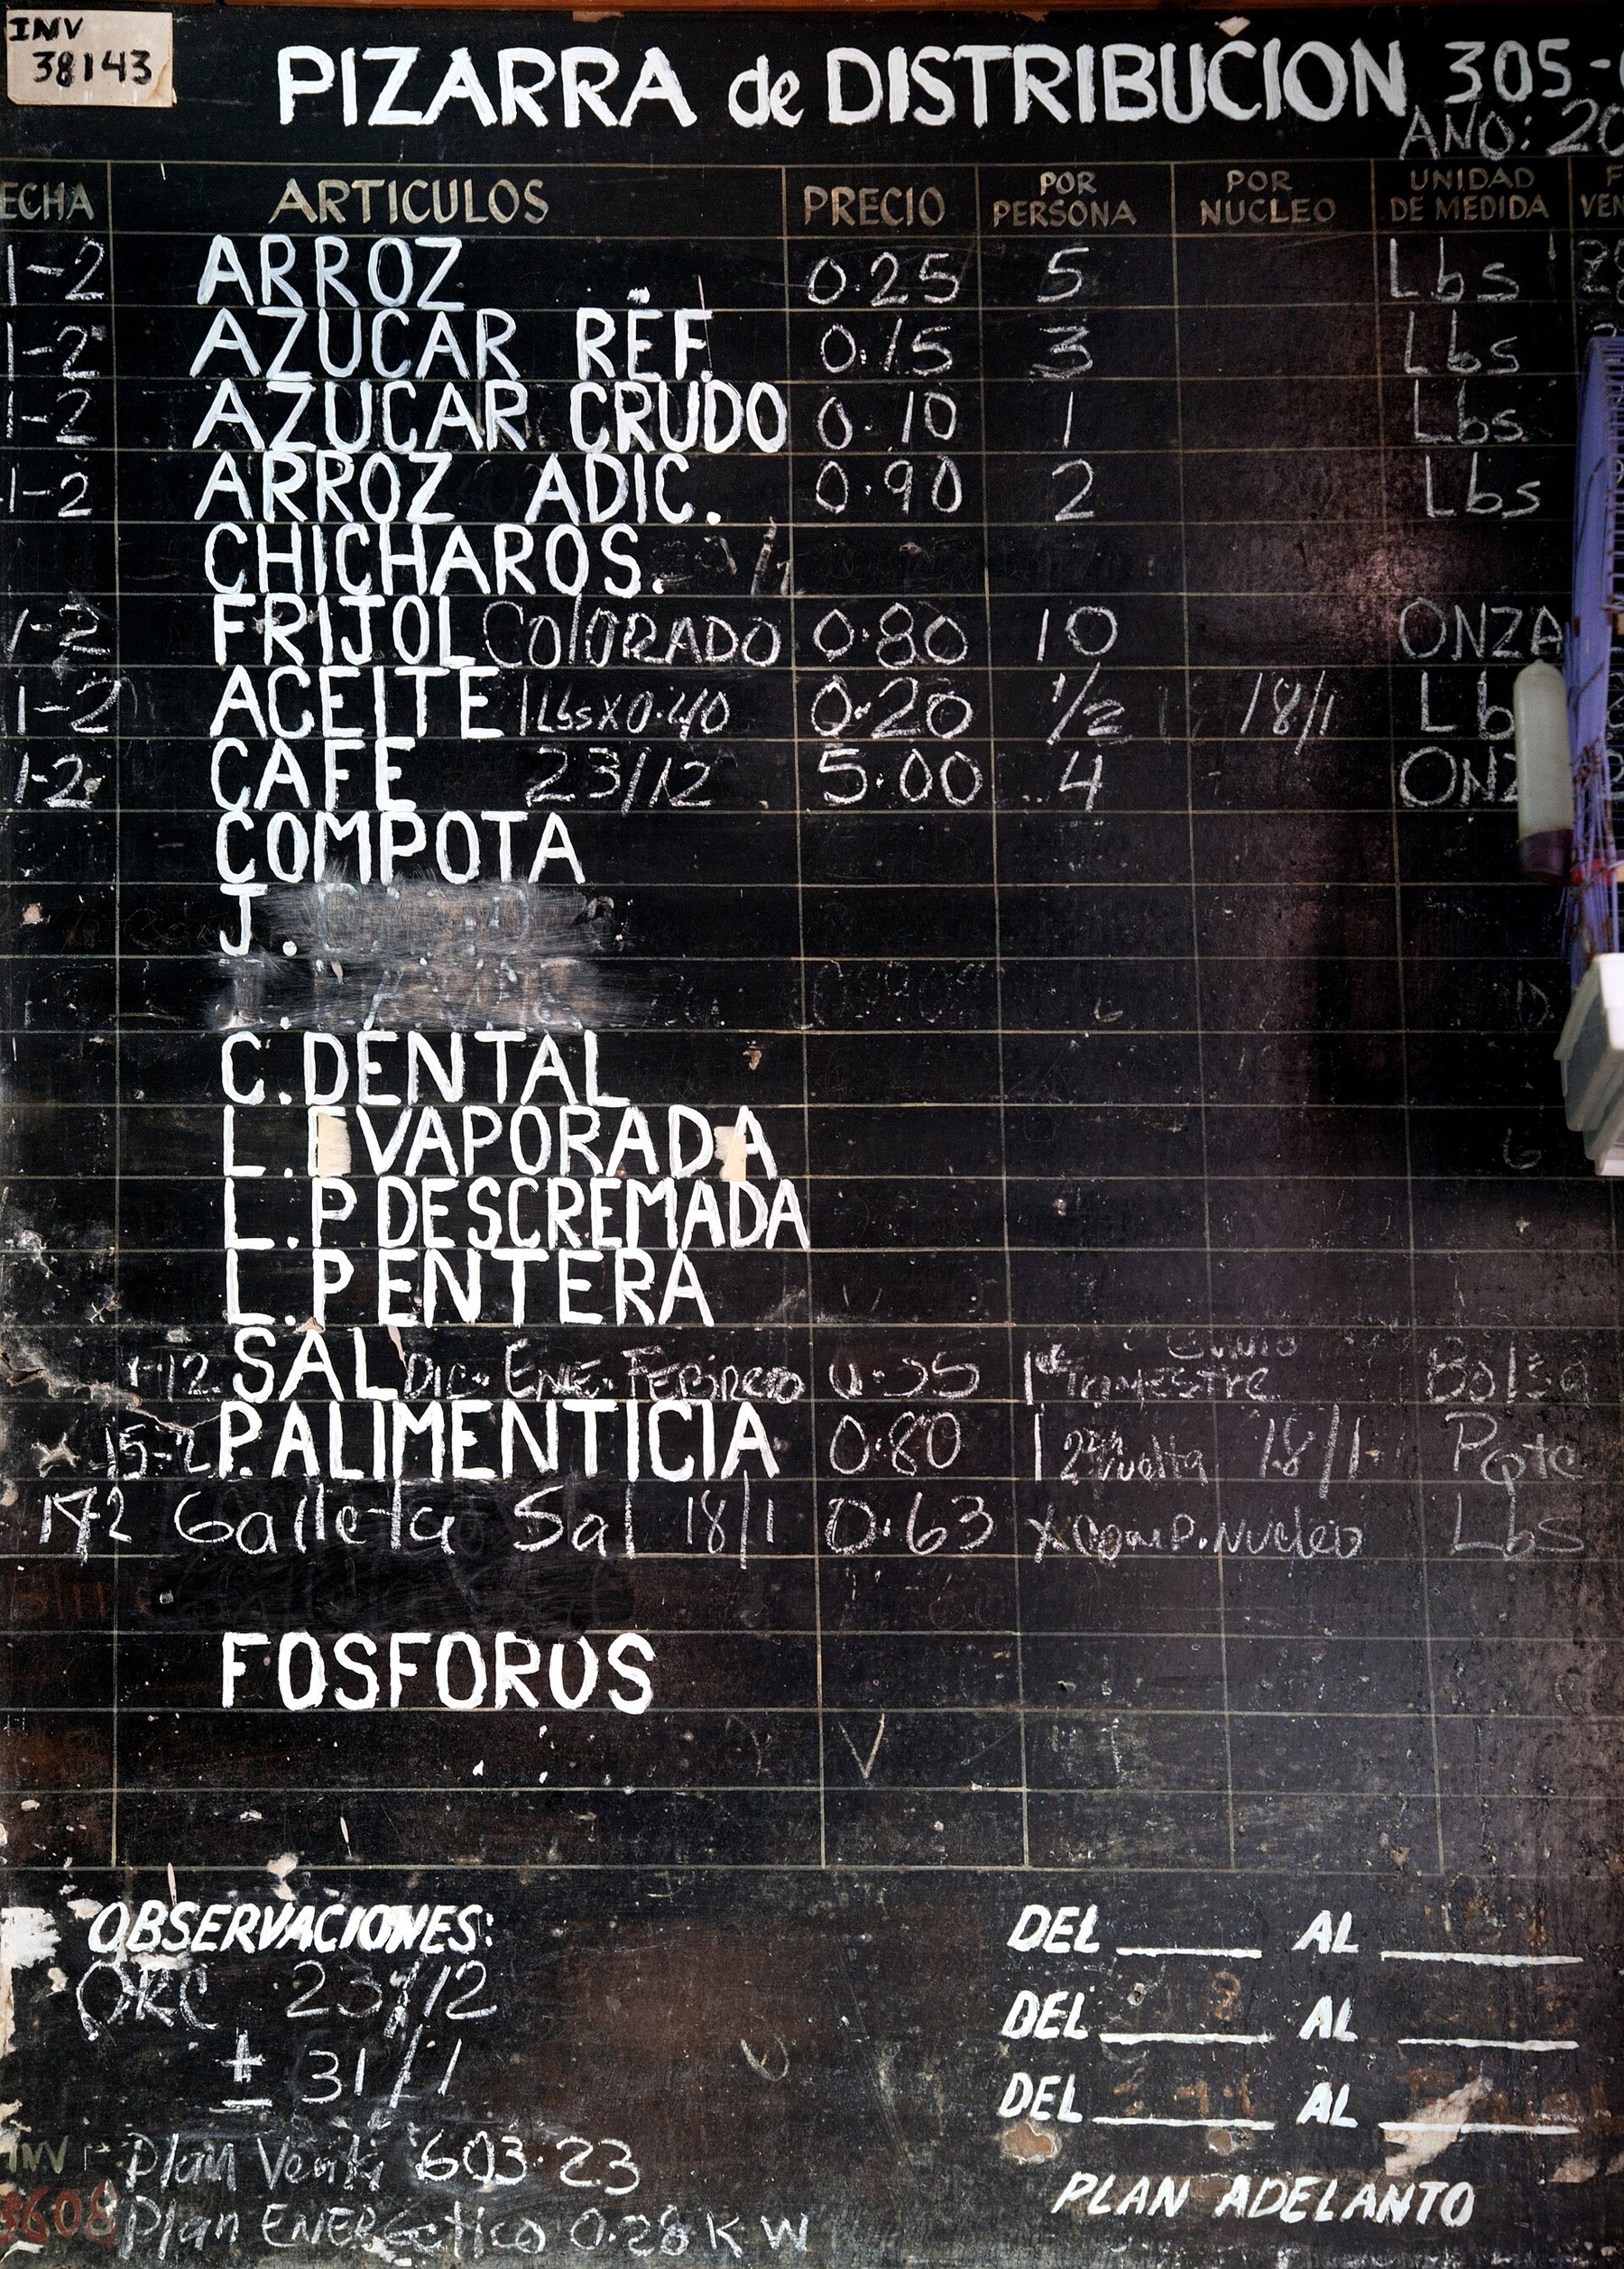 INV
38143
PIZARRA de DISTRIBUCION 305-
AÑO: 20
ECHA ARTICULOS PRECIO POR PERSONA POR NUCLEO UNIDAD DE MEDIDA F VEN
1-2 ARROZ 0.25 5 Lbs
1-2 AZUCAR REF. 0.15 3 Lbs
1-2 AZUCAR CRUDO 0.10 1 Lbs
1-2 ARROZ ADIC. 0.90 2 Lbs
CHICHAROS.
1-2 FRIJOL COlORADO 0.80 10 ONZA
1-2 ACEITE 1LbsX0.40 0.20 1/2 18/1 Lb
1-2 CAFE 23/12 5.00 4 ONZ
COMPOTA
J.
C. DENTAL
L. EVAPORADA
L. P DESCREMADA
L. P ENTERA
1-12 SAL Dic. ENE. FEBRERO 0.35 1 Trimestre Bolsa
15-2 P. ALIMENTICIA 0.80 1 2da Vuelta 18/1 Pqte
17-2 Galleta Sal 18/1 0.63 X Comp. Nucleo Lbs
FOSFOROS
OBSERVACIONES:
23/12
± 31/1
Plan Venta 603.23
3608 Plan ENERGetico 0.28 KW
DEL AL
DEL AL
DEL AL
PLAN ADELANTO